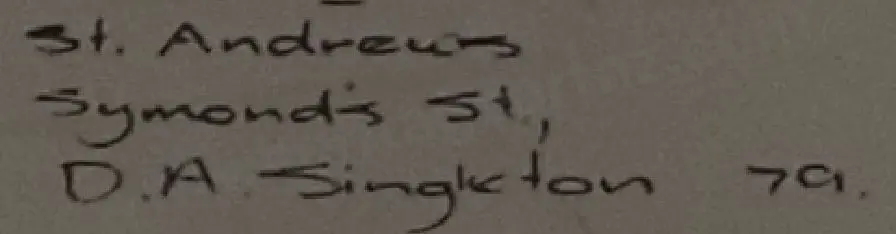 St. Andrews
Symonds St,
D.A. Singleton 79.